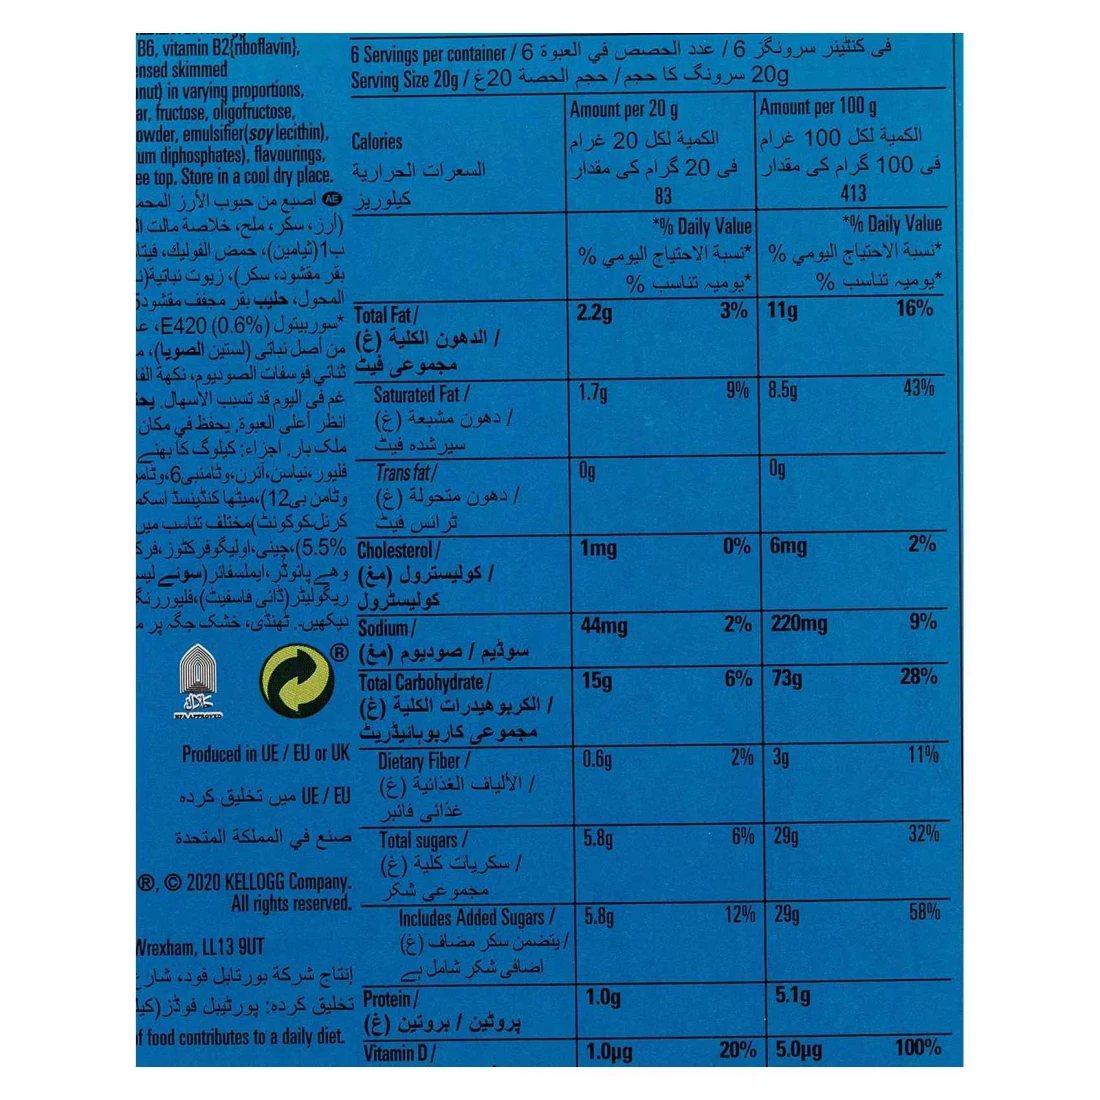 B6, vitamin B2(riboflavin),
ensed skimmed
nut) in varying proportions,
ar, fructose, oligofructose,
owder, emulsifier(soy lecithin),
um diphosphates), flavourings,
ee top. Store in a cool dry place.
AE اصبع من حبوب الأرز المحم
(أرز، سكر، ملح، خلاصة مالت ال
ب1(ثيامين)، حمض الفوليك، فيتا
بقر مقشود، سكر)، زيوت نباتية(ن
المحول، حليب بقر مجفف مقشود(
*سوربيتول E420 (0.6%)، ع
من أصل نباتي (لستين الصويا)، م
ثنائي فوسفات الصوديوم، نكهة الفا
غم في اليوم قد تسبب الاسهال. يحف
انظر أعلى العبوة. يحفظ في مكان
ملک بار. اجزاء: کیلوگ کا بھنے
فلیور،نیاسن،آئرن،وٹامنبی6،وٹامن
وٹامن بی12)،میٹھا کنڈینسڈ اسکم
کرنل،کوکونٹ)مختلف تناسب میں
5.5%)،چینی،اولیگوفرکٹوز،فرک
وھے پائوڈر،ایملسفائر(سوئے لیس
ریگولیٹر(ڈائی فاسفیٹ)،فلیوررنگ
دیکھیں۔. ٹھنڈی، خشک جگہ پر م
®
Produced in UE / EU or UK
UE / EU میں تخلیق کردہ
صنع في المملكة المتحدة
®, © 2020 KELLOGG Company.
All rights reserved.
Wrexham, LL13 9UT
إنتاج شركة بورتابل فود، شار ع
تخلیق کردہ: پورٹیبل فوڈز(کیل
f food contributes to a daily diet.
6 Servings per container / 6 عدد الحصص في العبوة / 6 فی کنٹینر سرونگز
Serving Size 20g / حجم الحصة 20غ / سرونگ کا حجم 20g
Calories
السعرات الحرارية
کیلوریز
Amount per 20 g
الكمية لكل 20 غرام
فی 20 گرام کی مقدار
83
Amount per 100 g
الكمية لكل 100 غرام
فی 100 گرام کی مقدار
413
*% Daily Value *% Daily Value
*نسبة الاحتياج اليومي % *نسبة الاحتياج اليومي %
*یومیہ تناسب % *یومیہ تناسب %
Total Fat / 2.2g 3% 11g 16%
الدهون الكلية (غ) /
مجموعی فیٹ
Saturated Fat / 1.7g 9% 8.5g 43%
دهون مشبعة (غ) /
سیر شدہ فیٹ
Trans fat / 0g 0g
دهون متحولة (غ) /
ٹرانس فیٹ
Cholesterol / 1mg 0% 6mg 2%
كوليسترول (مغ) /
کولیسٹرول
Sodium / 44mg 2% 220mg 9%
سوڈیم / صوديوم (مغ)
Total Carbohydrate / 15g 6% 73g 28%
الكربوهيدرات الكلية (غ) /
مجموعی کاربوہائیڈریٹ
Dietary Fiber / 0.6g 2% 3g 11%
الألياف الغذائية (غ) /
غذائی فائبر
Total sugars / 5.8g 6% 29g 32%
سكريات كلية (غ) /
مجموعی شکر
Includes Added Sugars / 5.8g 12% 29g 58%
يتضمن سكر مضاف (غ) /
اضافی شکر شامل ہے
Protein / 1.0g 5.1g
پروٹین / بروتين (غ)
Vitamin D / 1.0µg 20% 5.0µg 100%